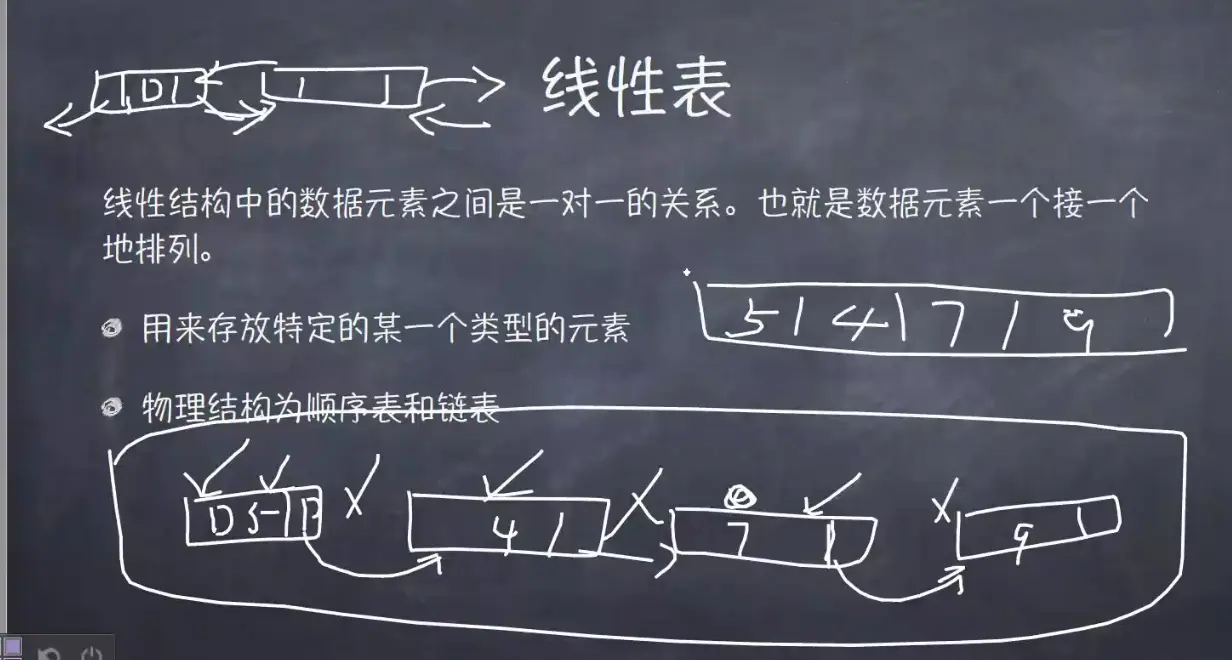 D
线性表
线性结构中的数据元素之间是一对一的关系。也就是数据元素一个接一个
地排列。
5 4 7 9
用来存放特定的某一个类型的元素
物理结构为顺序表和链表
D 5 P 4 7 9